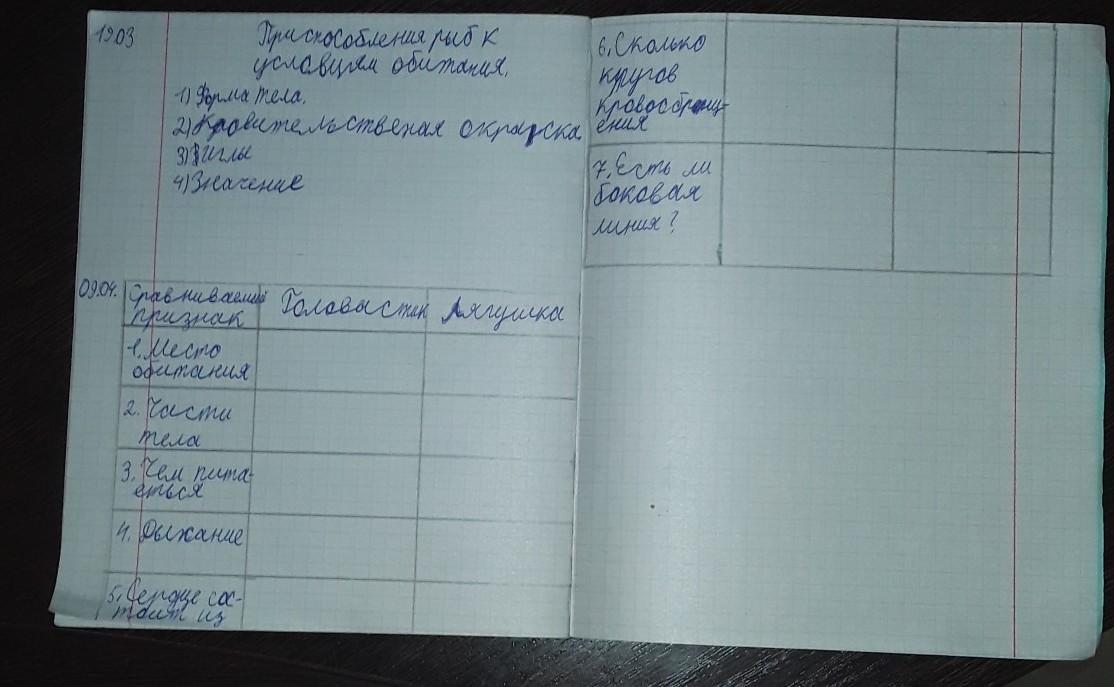 19.03
Приспособления рыб к
условиям обитания.
1) Форма тела.
2) Кровительственая окраска
3) Иглы
4) Значение
09.04.
Сравниваемый признак Головастик Лягушка
1. Место
обитания
2. Части
тела
3. Чем пита-
еться
4. Дыхание
5. Сердце сос-
тоит из
6. Сколько
кругов
кровообращ-
ения
7. Есть ли
боковая
линия?